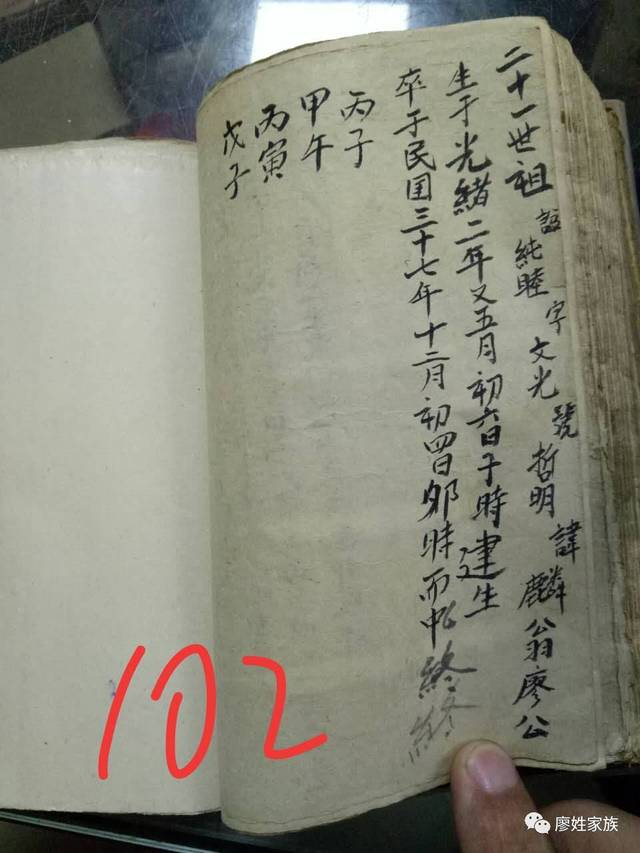 二十一世祖諡純睦字文光號哲明諱麟翁廖公
生于光緒二年又五月初六日子時建生
卒于民国三十七年十二月初四日卯時而終
終
丙子
甲午
丙寅
戊子
102
廖姓家族